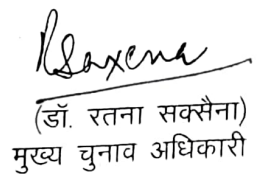 RSaxena
(डॉ. रतना सक्सैना)
मुख्य चुनाव अधिकारी